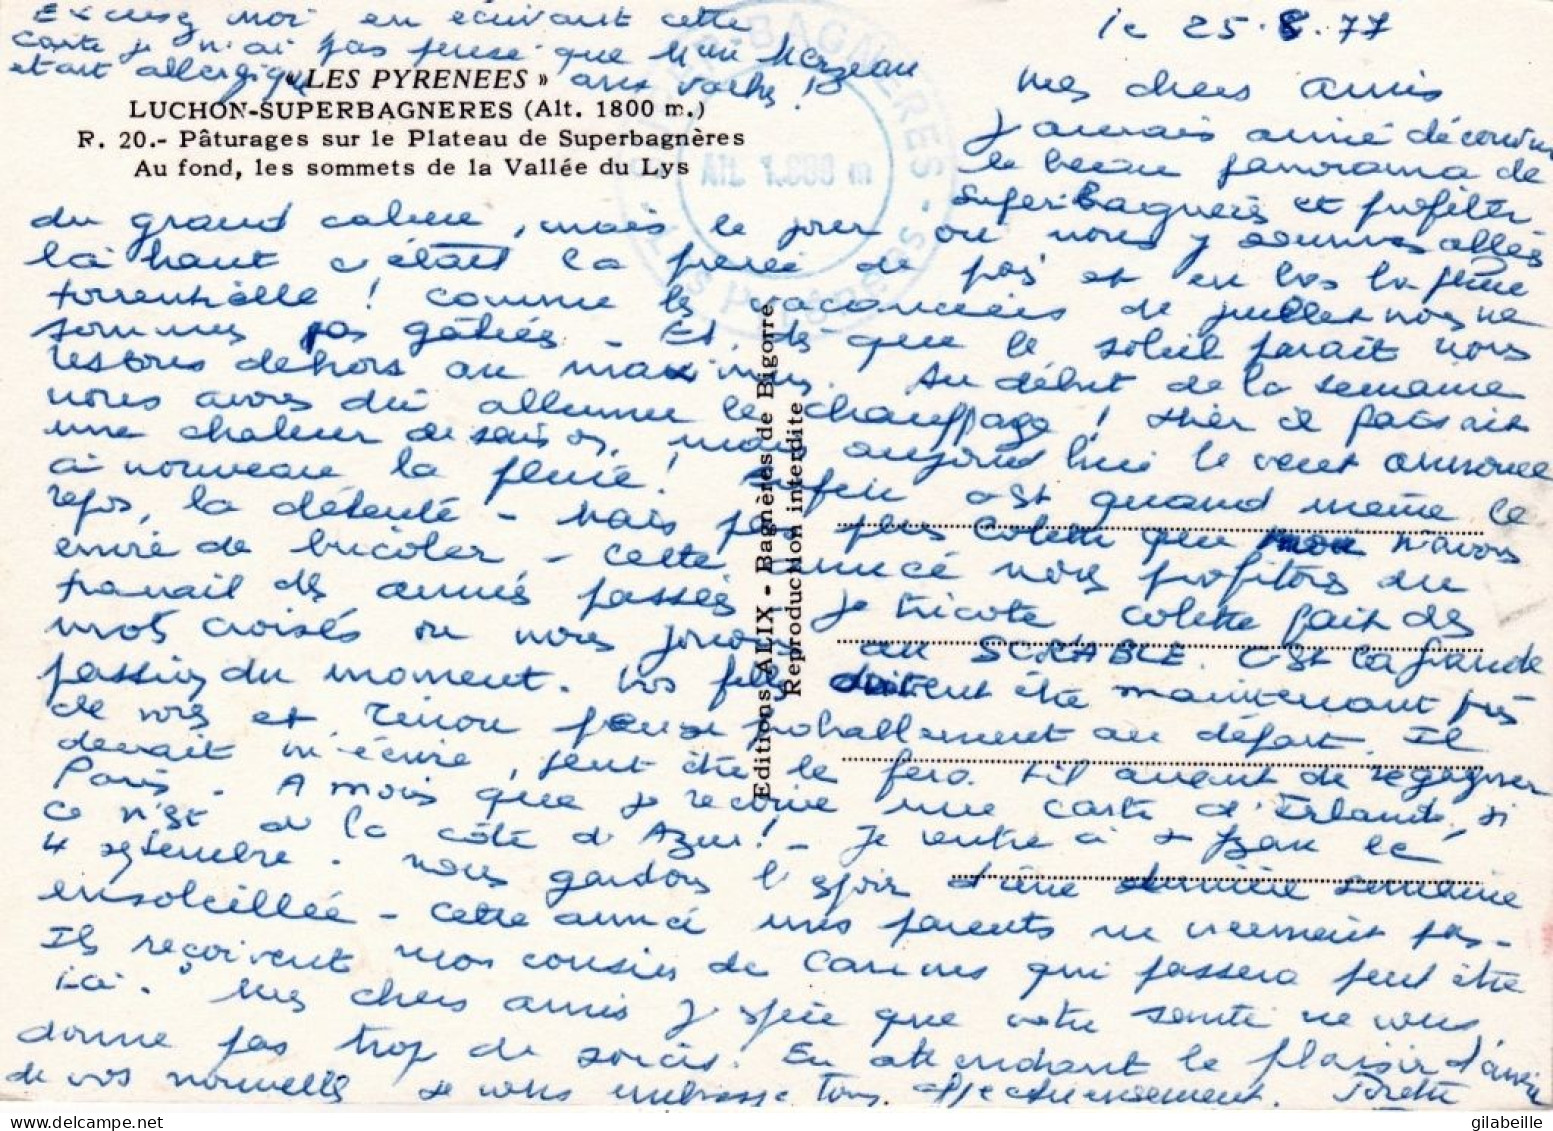 Excusez moi en écrivant cette
carte je n'ai pas pensé que Mon
était allergique aux vaches !
le 25.8.77
« LES PYRENEES »
LUCHON-SUPERBAGNERES (Alt. 1800 m.)
R. 20.- Pâturages sur le Plateau de Superbagnères
Au fond, les sommets de la Vallée du Lys
SUPERBAGNERES
Alt. 1.800 m
Mes chers amis
J'aurais aimé découvrir
le beau panorama de
SuperBagnères et profiter
du grand calme, mais le jour où nous y sommes allés
là haut c'était la purée de pois et en bas la pluie
torrentielle ! comme les vacanciers de juillet nous ne
sommes pas gâtés - Et dès que le soleil parait nous
restons dehors au maximum. Au début de la semaine
nous avons dû allumer le chauffage ! Hier il faisait
une chaleur de saison, mais aujourd'hui le vent annonce
à nouveau la pluie ! Enfin c'est quand même le
repos, la détente - Mais pas plus Colette que moi n'avons
envie de bricoler - Cette année nous profitons du
travail des années passées je tricote Colette fait des
mots croisés ou nous jouons au SCRABLE. C'est la grande
passion du moment. Vos filles doivent être maintenant près
de vous et pense probablement au départ. Il
devait m'écrire, peut être le fera t'il avant de regagner
Paris. A moins que je reçoive une carte d'Irlande, si
ce n'est de la côte d'Azur ! - Je rentre à le
4 septembre. Nous gardons l'espoir d'une dernière semaine
ensoleillée - Cette année mes parents ne viennent pas -
Ils reçoivent mes cousins de Cannes qui passera peut être
ici. Mes chers amis j'espère que votre santé ne vous
donne pas trop de soucis. En attendant le plaisir d'avoir
de vos nouvelles je vous embrasse tous affectueusement.
Editions ALIX - Bagnères de Bigorre
Reproduction interdite
gilabeille